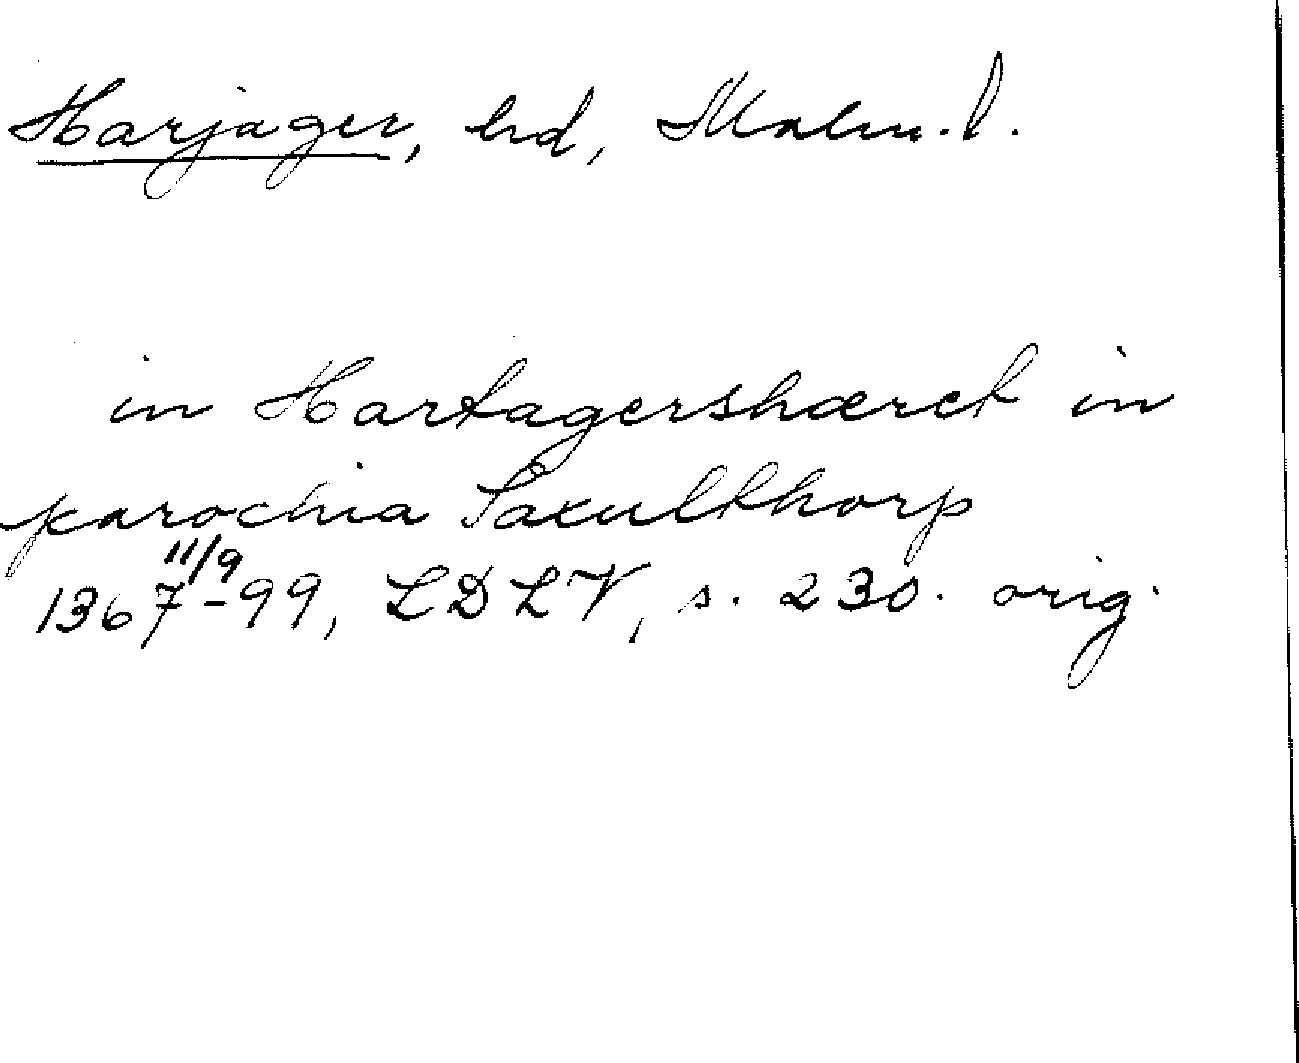 Harjager, hd, Malm.l.
in Hartagershæret in
parochia Saxulthorp
1367 11/9 -99, LDLV, s. 230. orig.